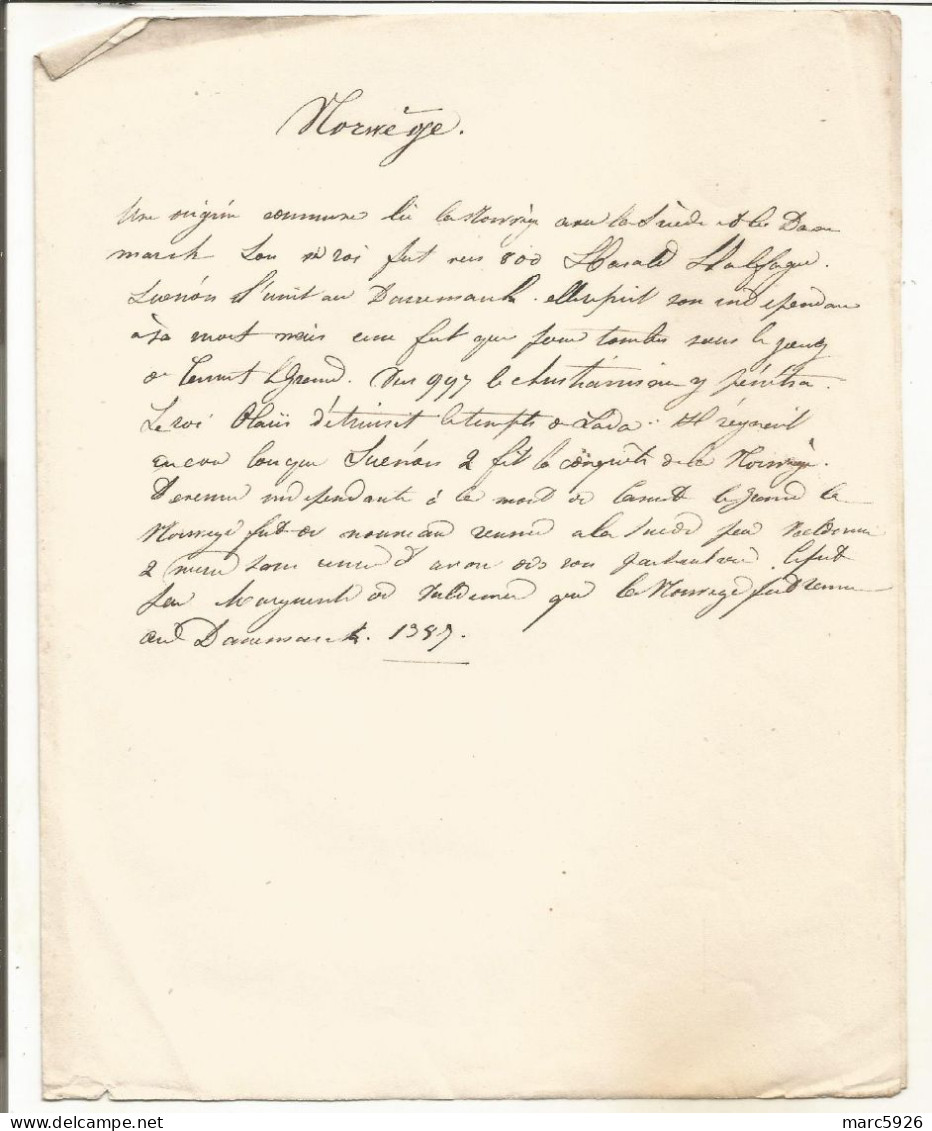 Norwège.
Une origine commune lie la Norwège avec la Suède et les Dane
march Son roi fut vers 800 Harald Halfagre.
Suénon l'unit au Danemark. elle reprit son indépendance
à sa mort mais ce ne fut que pour tomber sous le joug
de Canut le Grand. Vers 997 le christianisme y pénétra.
Le roi Olaüs détruisit le temple de Lada. Il régnait
encore lorsque Suénon 2 fit la conquête de la Norwège.
Devenue indépendante à la mort de Canut le Grand la
Norwege fut de nouveau réunie a la Suede par
2 mais sans avoir des rois Ce fut
Sous Marguerite de Valdemar que la Norwege fut réunie
au Danemark. 1387.
marc5926